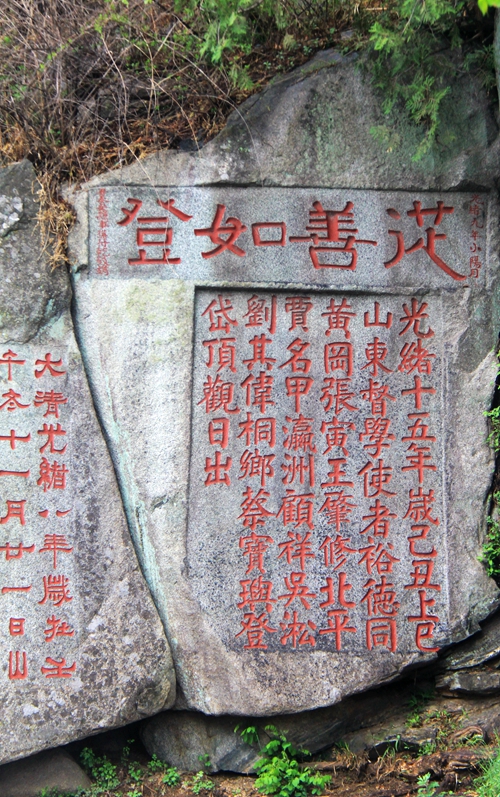 從善如登
光緒十五年歲己丑上巳
山東督學使者裕德同
黃岡張寅王肇修北平
賈名甲瀛洲顧祥吳淞
劉其偉桐鄉蔡寶璵登
岱頂觀日出
大清光緒八年歲在壬
午冬十一月廿一日山